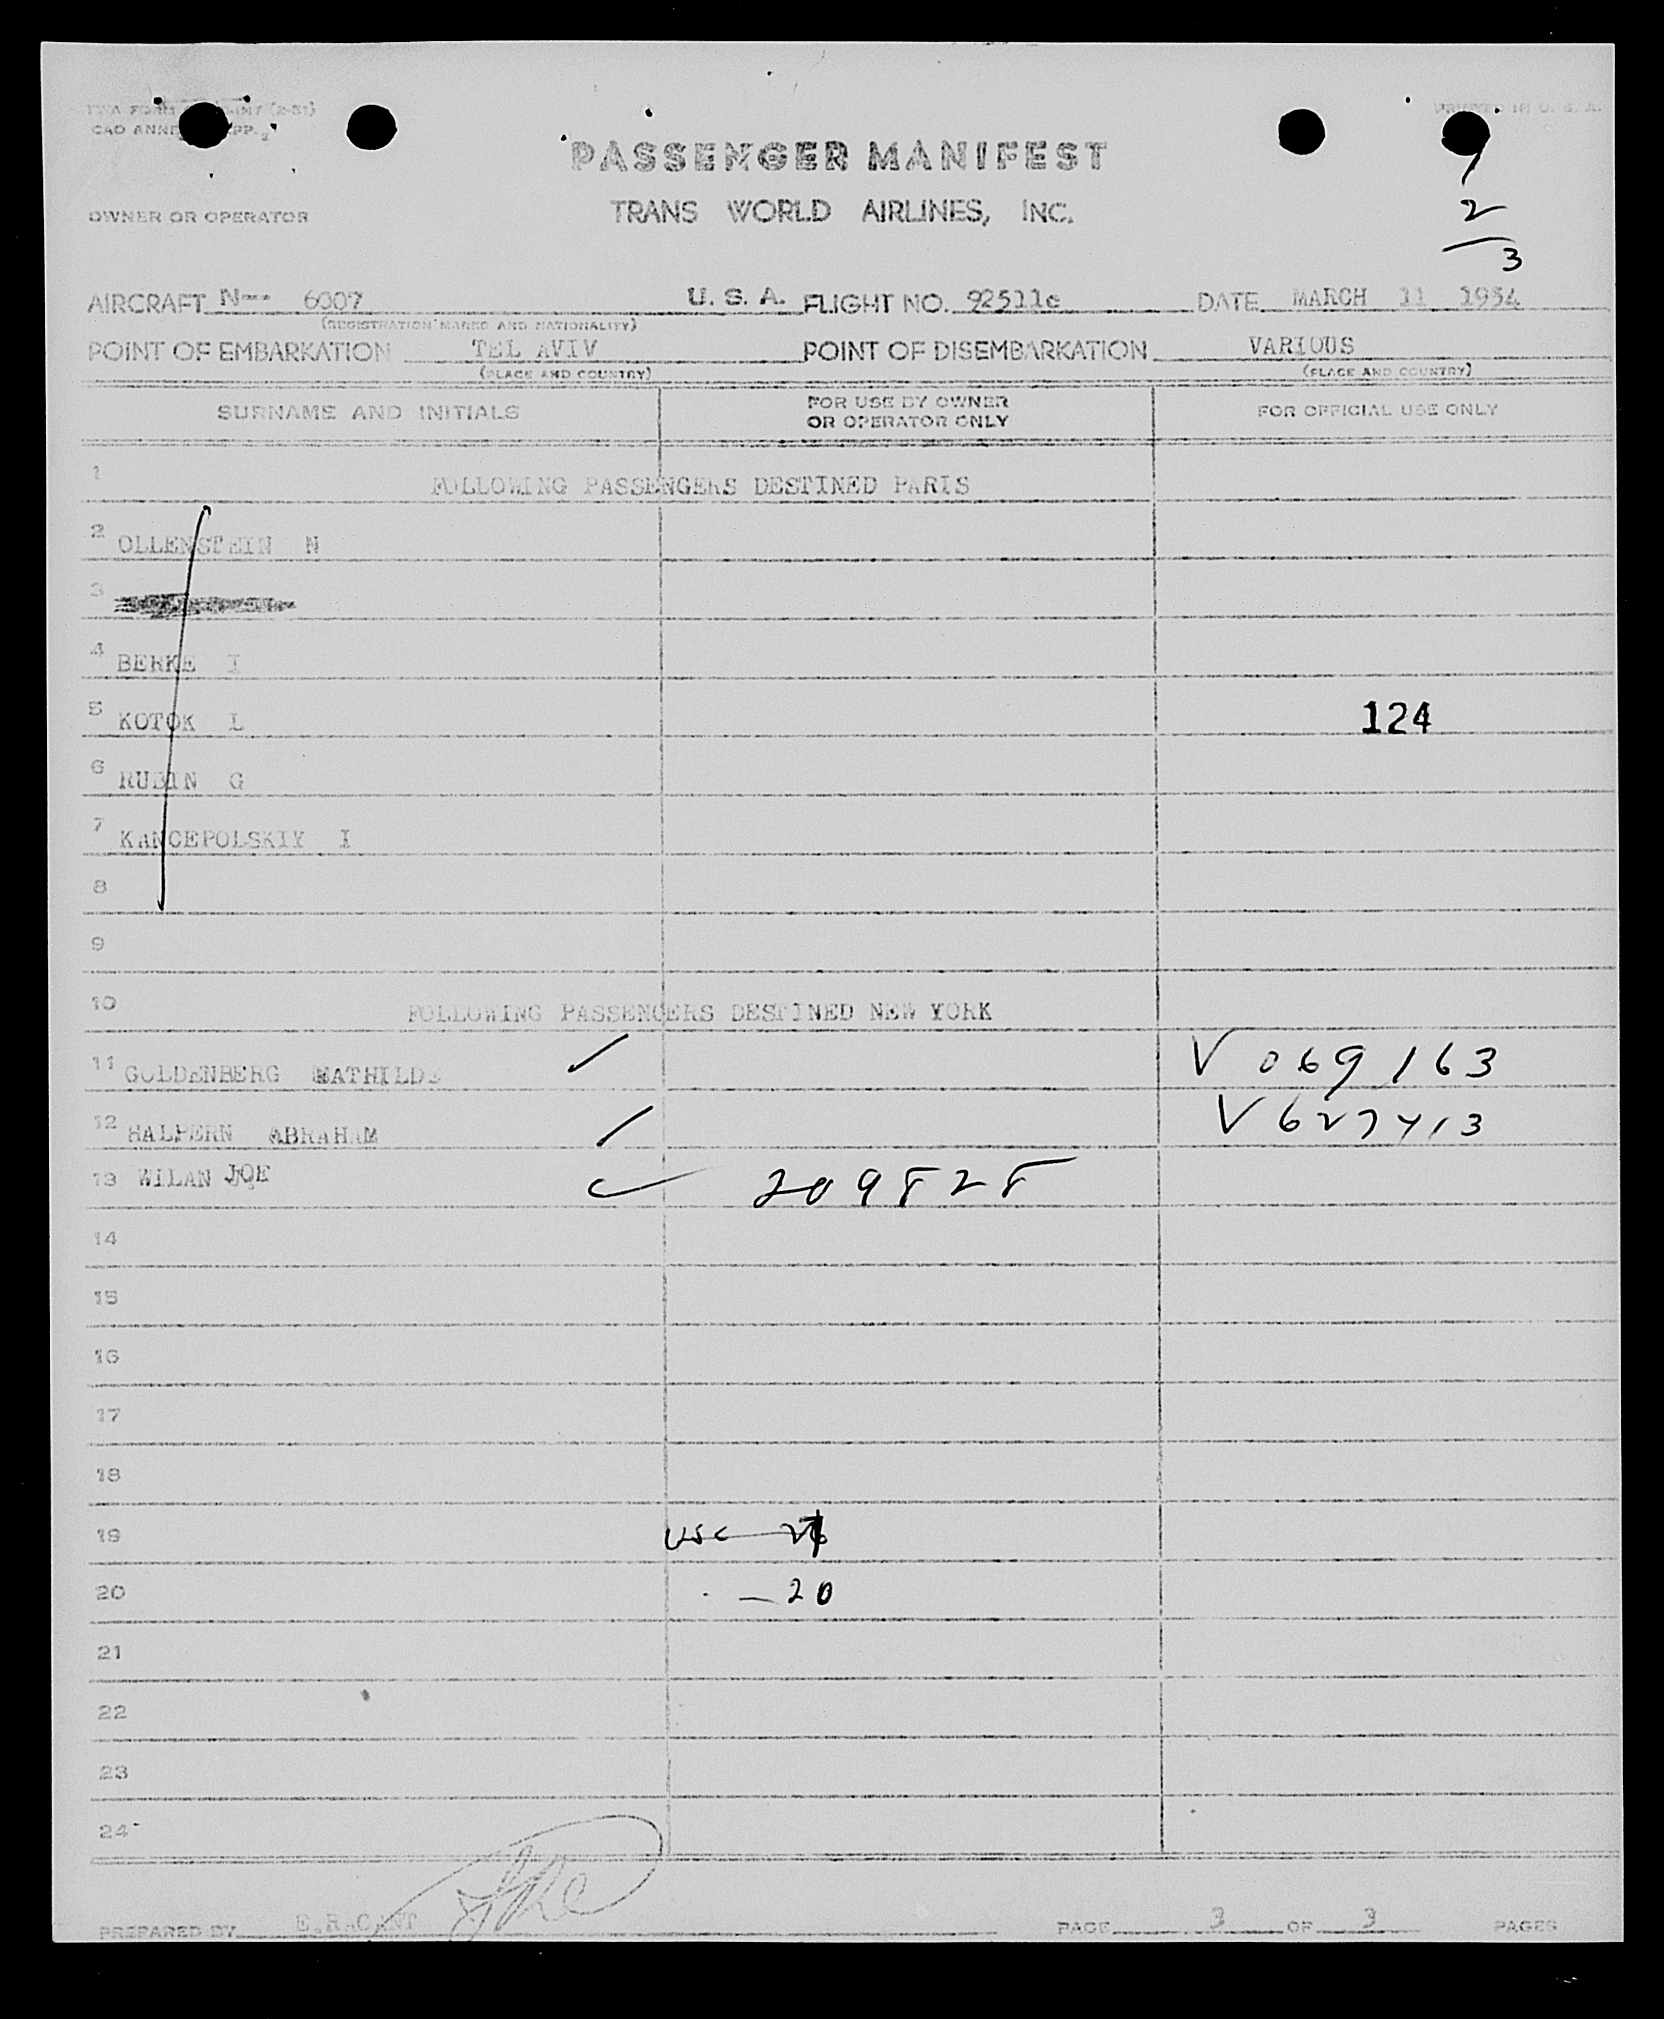 TWA FORM (2-51)
PRINTED IN U. S. A.
CAO ANNE APP.
PASSENGER MANIFEST
OWNER OR OPERATOR TRANS WORLD AIRLINES, INC.
2
3
AIRCRAFT N-- 6007 U. S. A. FLIGHT NO. 92511c DATE MARCH 11 1954
(REGISTRATION MARKS AND NATIONALITY)
POINT OF EMBARKATION TEL AVIV POINT OF DISEMBARKATION VARIOUS
(PLACE AND COUNTRY) (PLACE AND COUNTRY)
SURNAME AND INITIALS FOR USE BY OWNER OR OPERATOR ONLY FOR OFFICIAL USE ONLY
1 FOLLOWING PASSENGERS DESTINED PARIS
2 OLLENSTEIN N
3
4 BERKE I
5 KOTOK L 124
6 RUBIN G
7 KANCEPOLSKIY I
8
9
10 FOLLOWING PASSENGERS DESTINED NEW YORK
11 GOLDENBERG MATHILDE V 069163
12 HALPERN ABRAHAM V 627413
13 WILAN JOE 209828
14
15
16
17
18
19 USC
20 — 20
21
22
23
24
PREPARED BY E.R.CANT PAGE 3 OF 3 PAGES